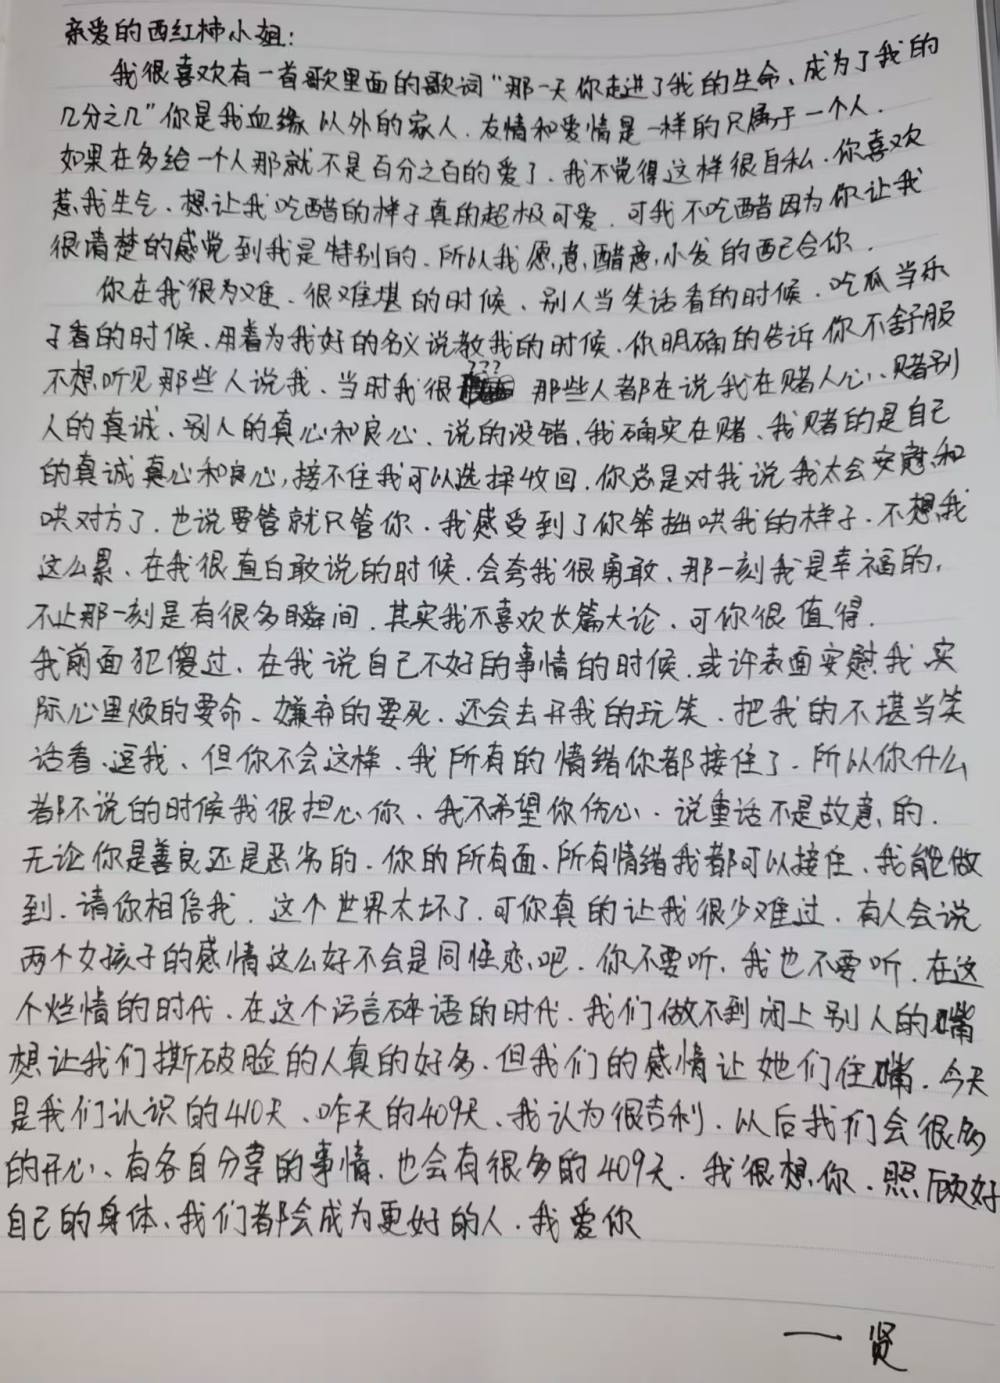 亲爱的西红柿小姐:
我很喜欢有一首歌里面的歌词"那一天你走进了我的生命、成为了我的
几分之几"你是我血缘以外的家人.友情和爱情是一样的只属于一个人.
如果在多给一个人那就不是百分之百的爱了.我不觉得这样很自私.你喜欢
惹我生气、想让我吃醋的样子真的超极可爱.可我不吃醋因为你让我
很清楚的感觉到我是特别的、所以我愿意醋意小发的配合你.
你在我很为难、很难堪的时候、别人当笑话看的时候.吃瓜当乐
子看的时候.用着为我好的名义说教我的时候.你明确的告诉你不舒服
不想听见那些人说我.当时我很??? 那些人都在说我在赌人心、赌别
人的真诚、别人的真心和良心.说的没错、我确实在赌、我赌的是自己
的真诚真心和良心,接不住我可以选择收回.你总是对我说我太会安慰和
哄对方了.也说要管就只管你.我感受到了你笨拙哄我的样子.不想我
这么累、在我很直白敢说的时候.会夸我很勇敢、那一刻我是幸福的,
不止那一刻是有很多瞬间.其实我不喜欢长篇大论、可你很值得.
我前面犯傻过、在我说自己不好的事情的时候.或许表面安慰我、实
际心里烦的要命、嫌弃的要死.还会去开我的玩笑、把我的不堪当笑
话看、逗我、但你不会这样、我所有的情绪你都接住了.所以你什么
都不说的时候我很担心你、我不希望你伤心.说重话不是故意的.
无论你是善良还是恶劣的.你的所有面、所有情绪我都可以接住、我能做
到.请你相信我.这个世界太坏了.可你真的让我很少难过.有人会说
两个女孩子的感情这么好不会是同性恋吧.你不要听、我也不要听.在这
个烂情的时代、在这个污言碎语的时代.我们做不到闭上别人的嘴
想让我们撕破脸的人真的好多.但我们的感情让她们住嘴.今天
是我们认识的410天、昨天的409天、我认为很吉利.以后我们会很多
的开心、有各自分享的事情.也会有很多的409天.我很想你.照顾好
自己的身体、我们都会成为更好的人.我爱你
一贤